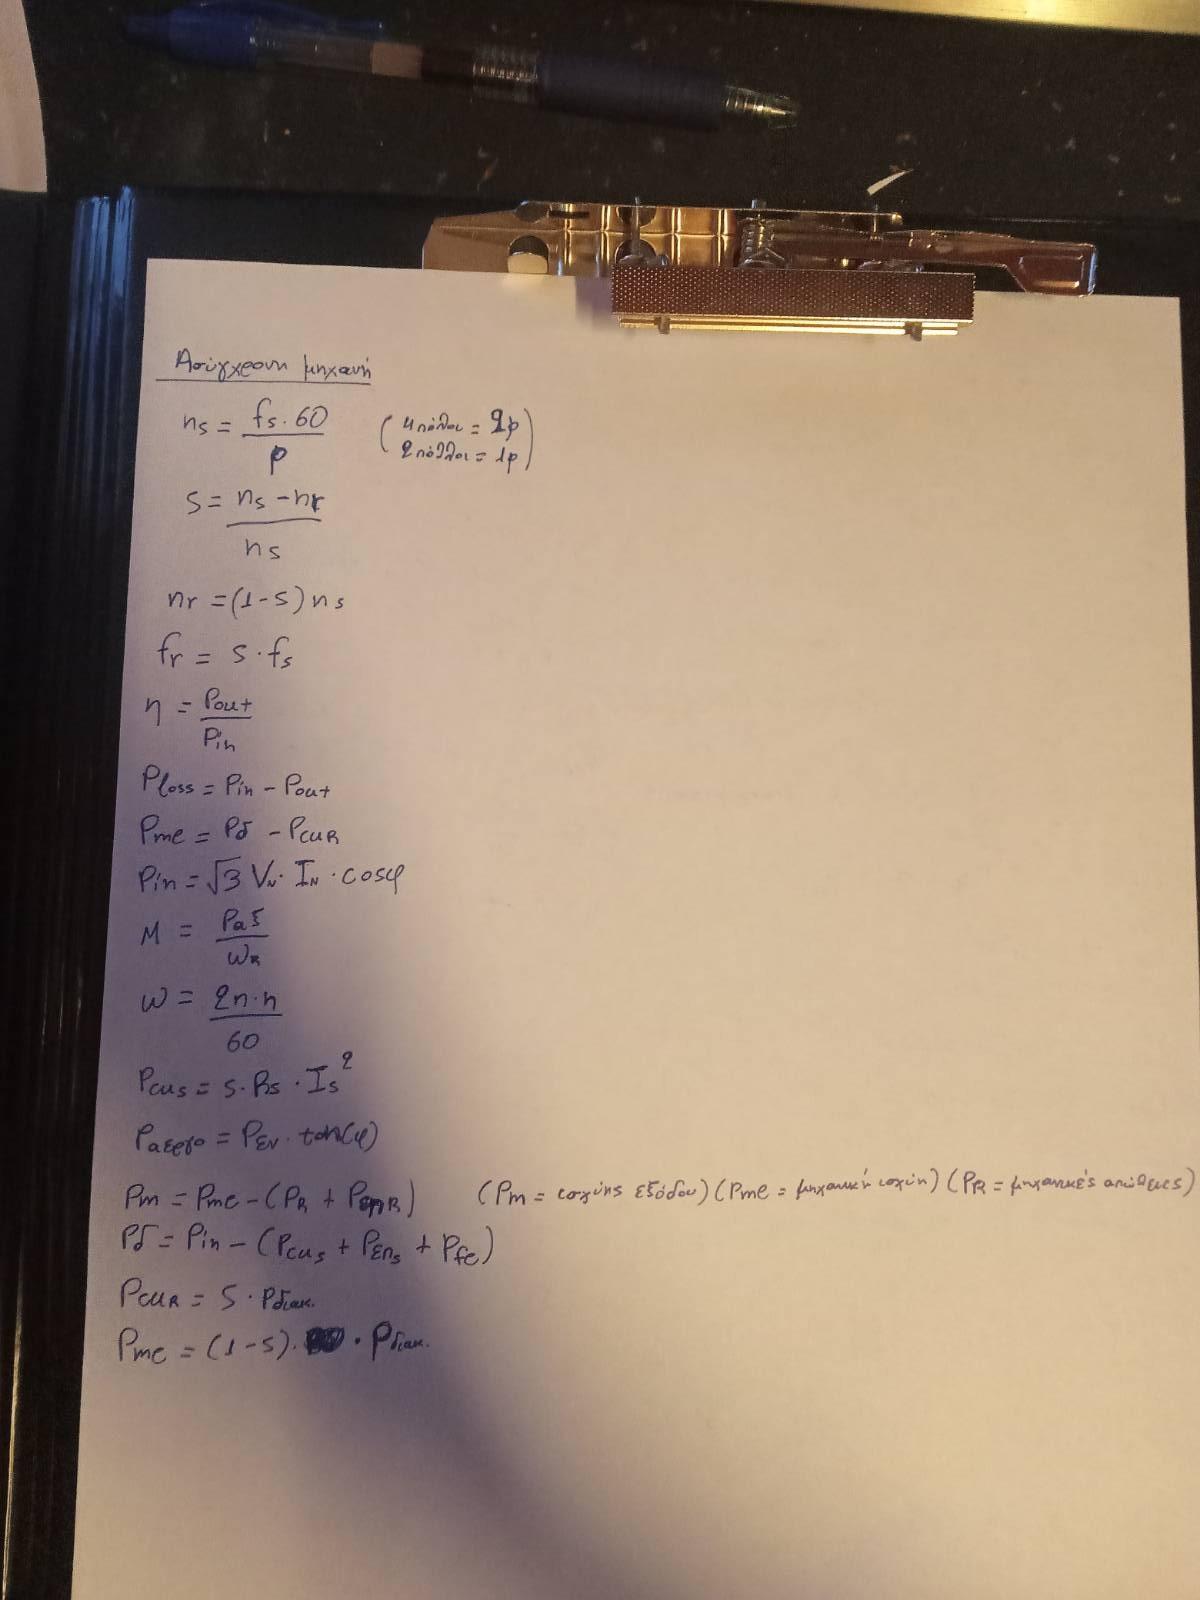 Ασύγχρονη μηχανή
ns = fs · 60 / p (4 πόλοι = 2p
2 πόλλοι = 1p)
s = ns - nr / ns
nr = (1-s) ns
fr = s · fs
η = Pout / Pin
Ploss = Pin - Pout
Pme = Pδ - PcuR
Pin = √3 VN · IN · cosφ
M = Paξ / ωR
ω = 2π·n / 60
Pcus = s · Rs · Is²
Pαεργο = Pεν · tan(φ)
Pm = Pme - (PR + PεπR) (Pm = ισχύης εξόδου) (Pme = μηχανική ισχύη) (PR = μηχανικές απώλειες)
Pδ = Pin - (Pcus + Pεπs + Pfe)
PcuR = s · Pδιακ.
Pme = (1-s) · · Pδιακ.